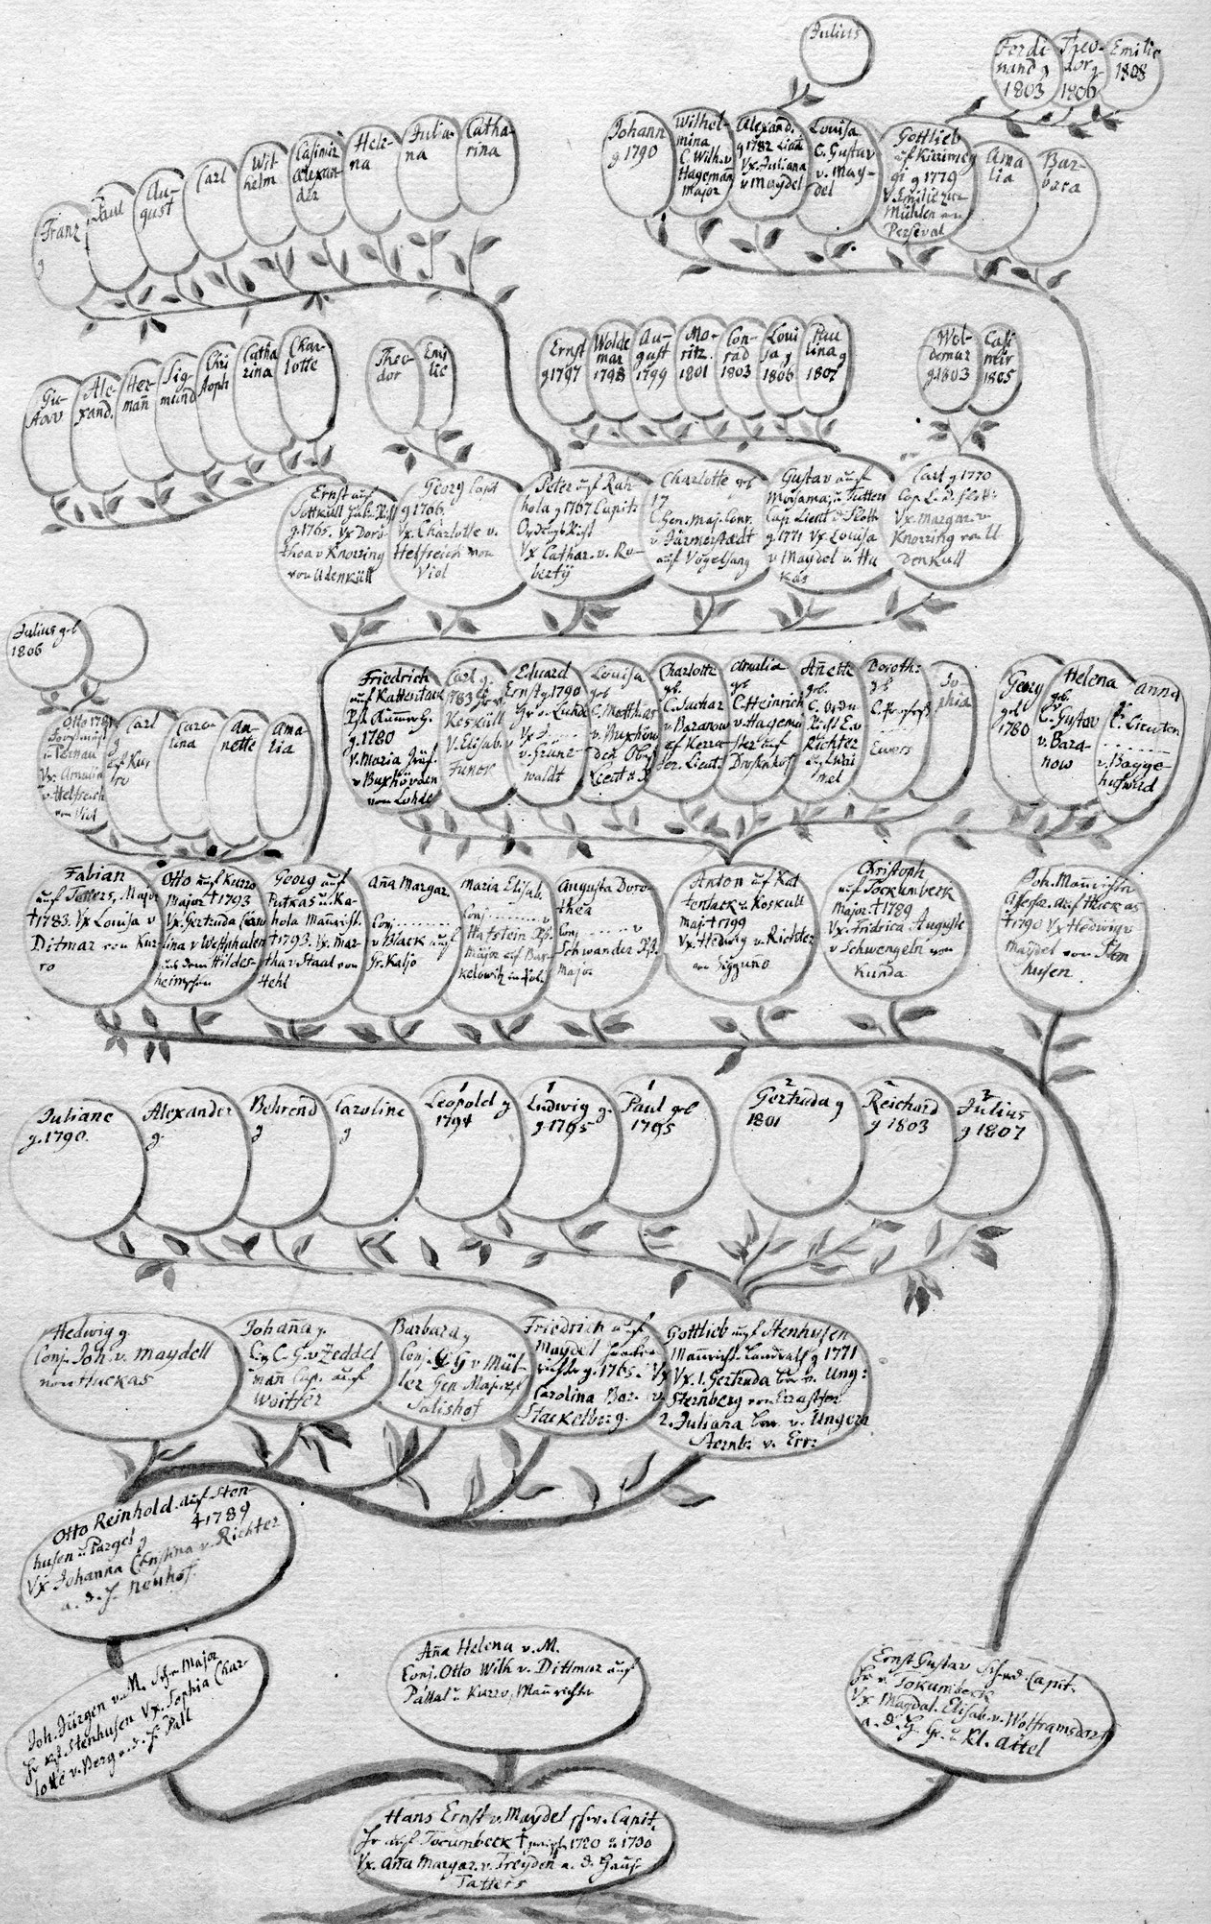 Julius
Ferdi-
nand g
1803
Theo-
dor g.
1806
Emilie
1808
Franz
g
Paul
Au-
gust
Carl
Wil-
helm
Casimir
Alexan-
der
Hele-
na
Julia-
na
Catha-
rina
Johann
g 1790
Wilhel-
mina
C. Wilh. v
Hagemañ
Major
Alexand.
g 1782
Vx. Juliana
v Maydel
Louisa
C. Gustav
v. May-
del
Gottlieb
auf
g 1779
V. Emilie zur
Mühlen
Perseval
Ama
lia
Bar-
bara
Gu-
stav
Ale-
xand.
Her-
mañ
Sig-
mund
Chri
stoph
Catha
rina
Char-
lotte
Theo-
dor
Emi
lie
Ernst
g 1797
Wolde
mar
1798
Au-
gust
1799
Mo-
ritz.
1801
Con-
rad
1803
Loui
sa g
1806
Pau
lina g
1807
Wol-
demar
g. 1803
Casi
mir
1805
Ernst auf
g. 1765. Vx Doro-
thea v Knorring
von Udenküll
Georg Capt
g 1766.
Vx. Charlotte v.
Helfreich von
Viol
Peter auf Rah-
hola g 1767 Capit
Vx Cathar. v. Ro-
bertÿ
Charlotte gb
17
C. Gen. Maj. Conr.
v Dürmerstädt
auf Vogelsang
Gustav auf
Moyama u Tatters
Cap. Lieut d Flott
g. 1771 Vx Louisa
v Maydel v. Hu
kas
Carl g 1770
Cap. L. d. Flott:
Vx. Margar. v.
Knorring von U
denkull
Julius gb
1806
Otto 1791
Pernau
Vx. Amalia
v Helfreich
von Viol
Carl
Caro-
lina
An-
nette
Ama-
lia
Friedrich
auf Kattentack
g. 1780
V. Maria Gräf.
v Buxhövden
von Lohde
Carl g.
1783
Koskull
V. Elisab. v
Funck
Eduard
Ernst g 1790
v. Grüne
waldt
Louisa
gb
C. Matthias
v. Buxhöv
den Ob
Lieut
Charlotte
gb.
C. Gustav
v Baranow
auf Kerra
Lieut:
Amalia
gb
C. Heinrich
v Hagemei
ster auf
Drostenhof
Añette
gb.
Richter
Doroth:
gb
C. Professor
Ewers
So
phia
Georg
gb
1780
Helena
gb.
C. Gustav
v. Bara
now
Anna
C. Lieuten
v. Bagge-
hufwud
Fabian
auf Tatters, Major
†1783. Vx Louisa v
Ditmar von Kur
ro
Otto auf Kurro
Major †1793
Vx. Gertruda Caro
lina v Westphalen
aus dem Hildes-
heimschen
Georg auf
Putkas u. Ka-
hola Mañricht.
†1793. Vx. Mar-
tha v Staal von
Hehl
Aña Margar.
Conj.
v Black auf
Gr. Kaljo
Maria Elisab.
Conj. v
Hatstein
Major auf Bar-
kelowitz in Pol.
Augusta Doro-
thea
Conj v
Schwander
Major
Anton auf Kat
tentack u Koskull
Maj. †1799
Vx. Hedwig v. Richter
von Sigguño
Christoph
auf Tockumbeck
Major. †1789
Vx. Fridrica Auguste
v Schwengeln von
Kunda
Joh. Mañrichter
Assessor. auf Huckas
†1790 Vx Hedwig v
Maydel von Sten
husen
Juliane
g. 1790.
Alexander
g.
Behrend
g
Caroline
g
1
Leopold g
1794
1
Ludwig g.
g. 1795
1
Paul gb
1795
2
Gertruda g
1801
2
Reichard
g 1803
2
Julius
g 1807
Hedwig g
Conj. Joh. v. Maydell
von Huckas
Johaña g.
C. C. G. v Zeddel
mañ Cap. auf
Woitfer
Barbara g
Conj. G v Mül-
ler Gen Maj. auf
Salishof
Friedrich auf
Maydel
g. 1765. Vx
Carolina Bar. v.
Stackelberg.
Gottlieb auf Stenhusen
Mañricht. Landrath g 1771
Vx. 1. Gertruda Bar v. Ung:
Sternberg von Errastfer
2. Juliana Bar. v. Ungern
Sternb: v. Err:
Otto Reinhold auf Sten-
husen u Pargel g †1789
Vx Johanna Christina v. Richter
a. d. H. Neuhof
Joh. Jürgen v. M. Schw Major
Hr auf Stenhusen Vx. Sophia Char-
lotte v. Berg a. d. H. Pall
Aña Helena v. M.
Conj. Otto Wilh v. Dittmar auf
Pattal u Kurro, Mañrichter
Ernst Gustav Schwed. Capit.
Hr v. Tokumbeck
Vx Magdal. Elisab. v. Wolframsdorf
a. d. H. Gr. u Kl. Attel
Hans Ernst v. Maydel schw. Capit.
Hr auf Tocumbeck † zwisch. 1720 u 1730
Vx. Aña Margar. v. Treyden a. d. Hause
Tatters